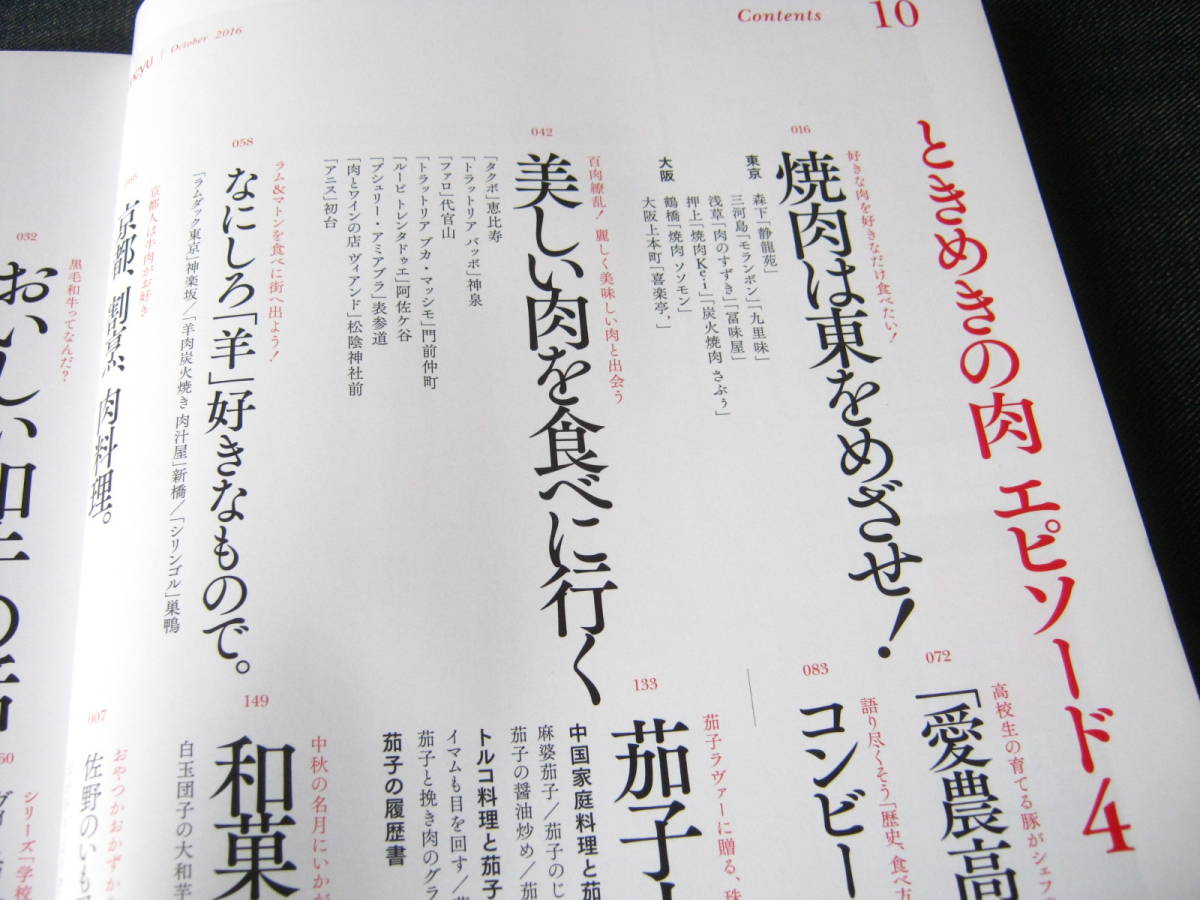 October 2016
Contents
10
ときめきの肉 エピソード4
016
好きな肉を好きなだけ食べたい!
焼肉は東をめざせ!
東京 森下「静龍苑」
三河島「モランボン」「九里味」
浅草「肉のすずき」「冨味屋」
押上「焼肉Kei」「炭火焼肉 さぶぅ」
大阪 鶴橋「焼肉 ソソモン」
大阪上本町「喜楽亭'」
042
百肉繚乱! 麗しく美味しい肉と出会う
美しい肉を食べに行く
「タクボ」恵比寿
「トラットリア バッボ」神泉
「ファロ」代官山
「トラットリア ブカ・マッシモ」門前仲町
「ルーピ トレンタドゥエ」阿佐ケ谷
「ブシュリー・アミアブラ」表参道
「肉とワインの店 ヴィアンド」松陰神社前
「アニス」初台
058
ラム&マトンを食べに街へ出よう!
なにしろ「羊」好きなもので。
「ラムダック東京」神楽坂/「羊肉炭火焼き 肉汁屋」新橋/「シリンゴル」巣鴨
京都人は牛肉がお好き
京都、割烹、肉料理。
032
黒毛和牛ってなんだ?
おいしい和牛の話
072
高校生の育てる豚がシェフ
「愛農高
083
語り尽くそう「歴史、食べ方
コンビー
133
茄子ラヴァーに贈る、珠
茄子
中国家庭料理と茄
麻婆茄子/茄子のじ
茄子の醤油炒め/茄
トルコ料理と茄子
イマムも目を回す/
茄子と挽き肉のグラ
茄子の履歴書
149
中秋の名月にいかが
和菓
白玉団子の大和芋
007
おやつかおかずか
佐野のいも
シリーズ「学校